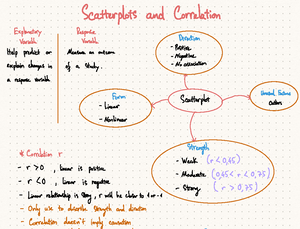 Scatterplots and Correlation
Explanatory
Variable
Help predict or
explain changes in
a response variable
Response
Variable
Measures an outcome
of a study.
Direction
- Positive
- Negative
- No association
Form
- Linear
- Nonlinear
Scatterplot
Unusual Feature
Outliers
Strength
- Weak (r < 0,45)
- Moderate (0,45 < r < 0,75)
- Strong (r > 0,75)
* Correlation r
- r > 0 , linear is positive
- r < 0 , linear is negative
- Linear relationship is strong, r will be closer to 1 or -1
- Only use to describe strength and direction
- Correlation doesn't imply causation